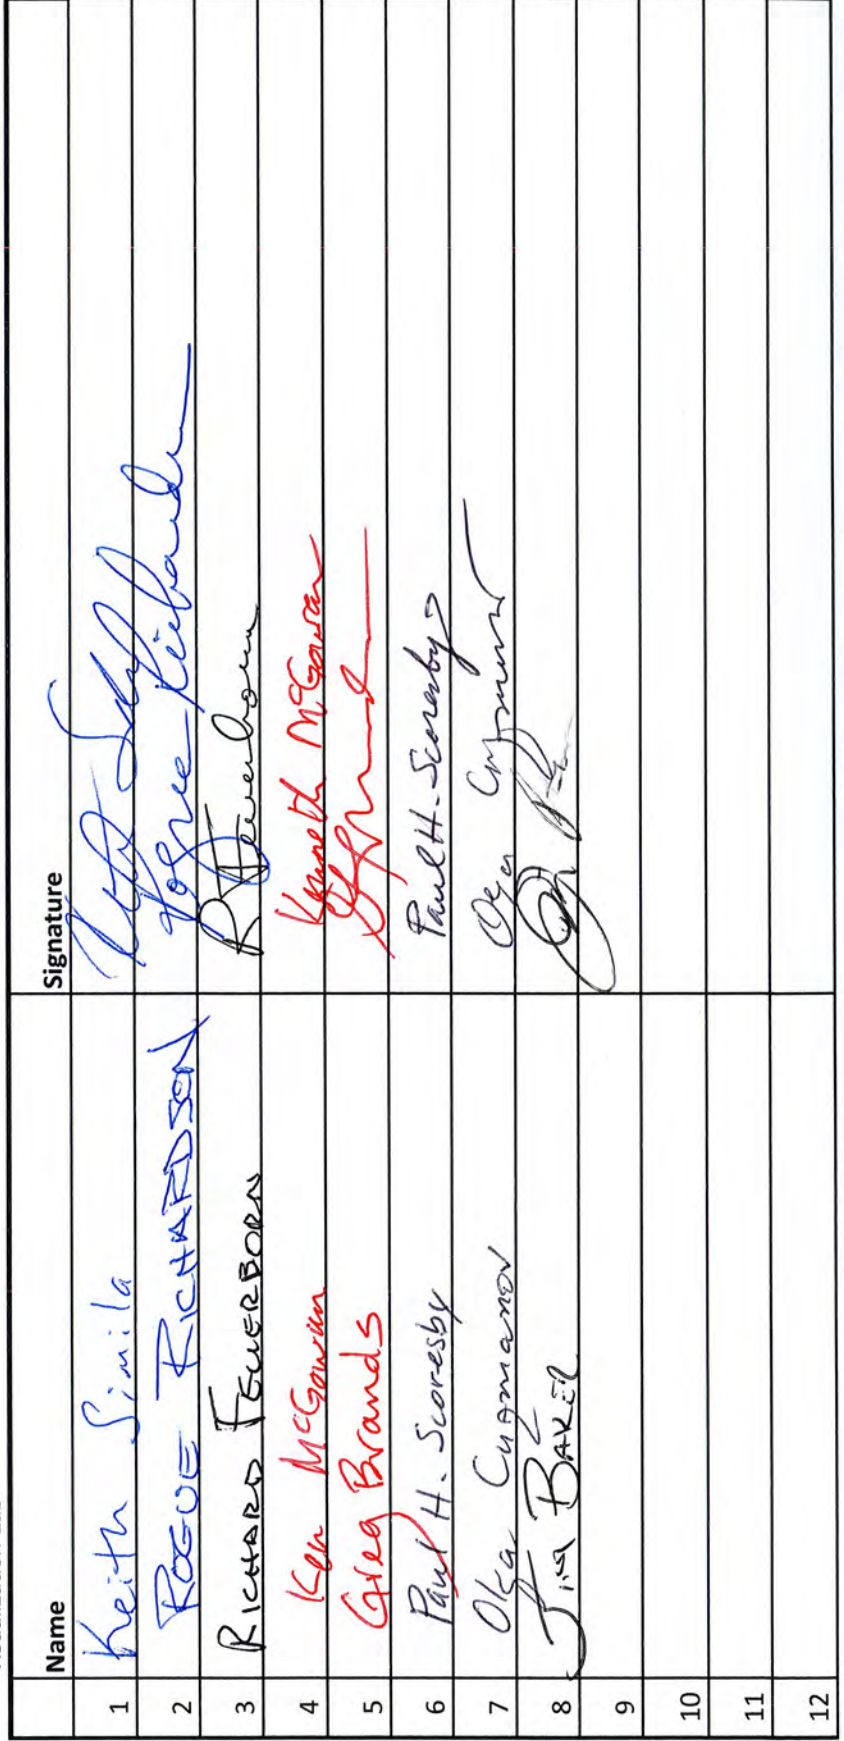 Name Signature
1 Keith Simila
2 ROGUE RICHARDSON
3 RICHARD FEUERBORN R Feuerborn
4 Ken McGowan Kenneth McGowan
5 Greg Brands
6 Paul H. Scoresby Paul H. Scoresby
7 Olga
8 Jim BAKER
9
10
11
12